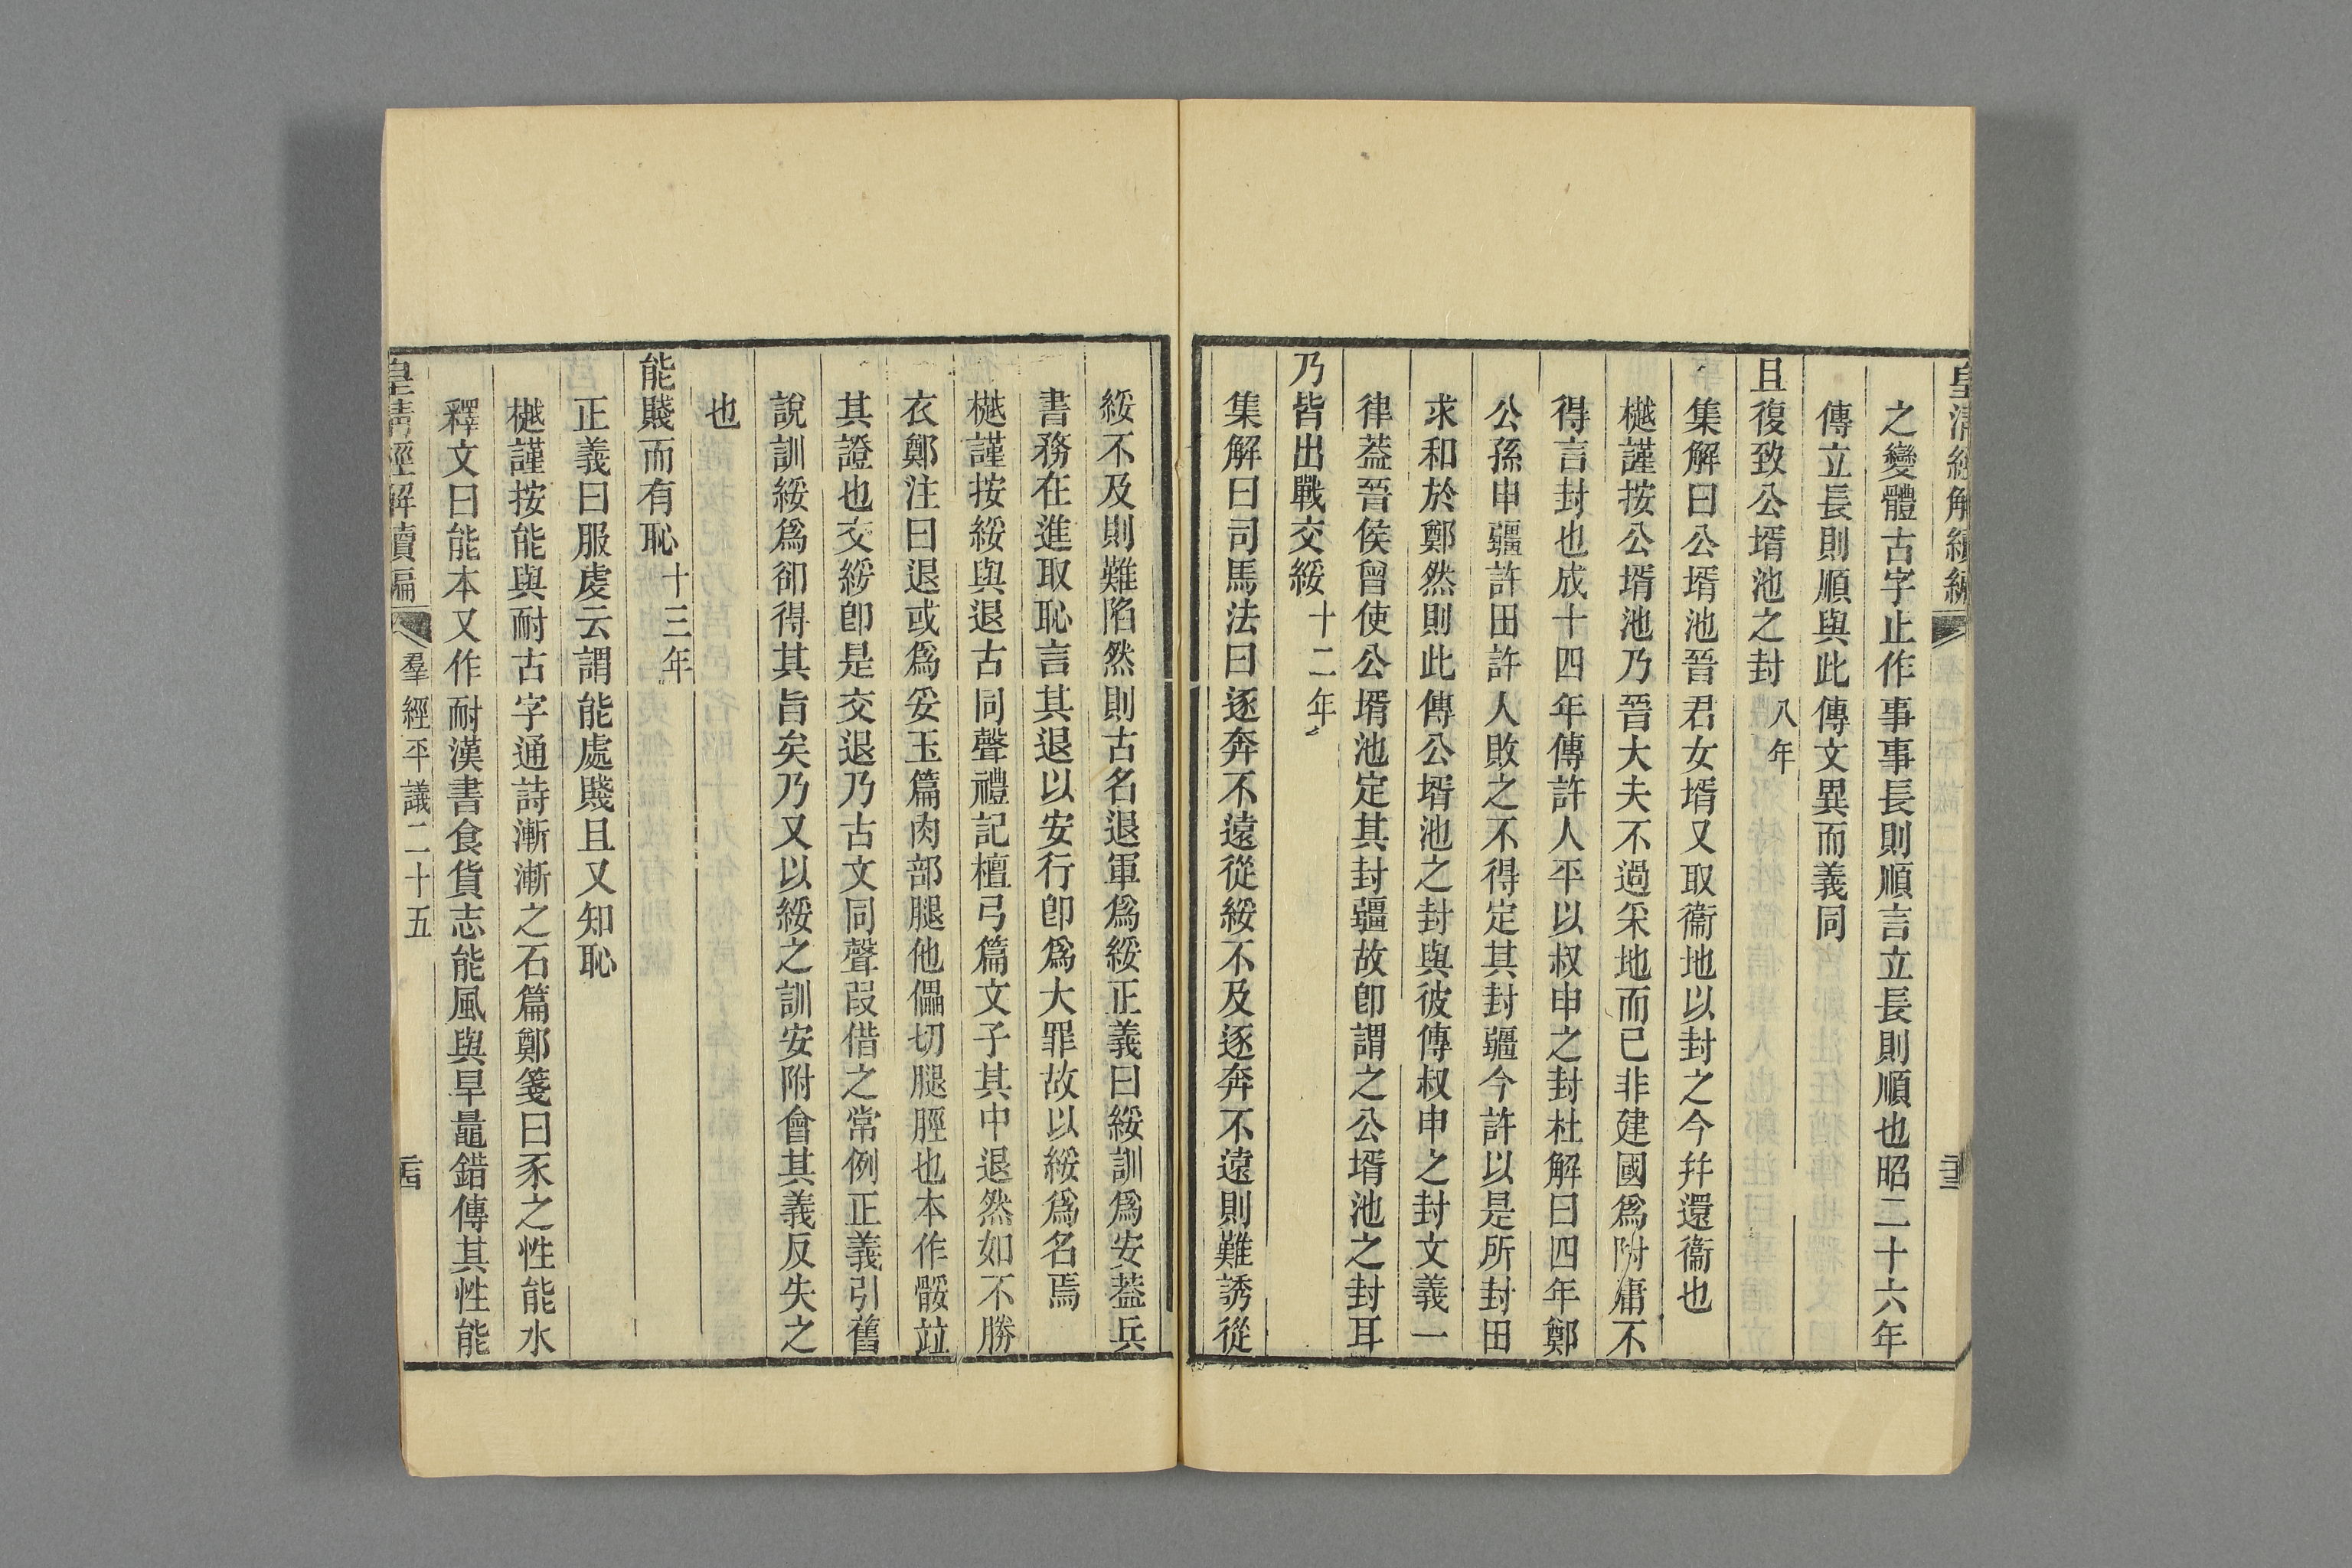 皇清經解續編
之變體古字止作事事長則順言立長則順也昭二十六年
傳立長則順與此傳文異而義同
且復致公壻池之封八年
集解曰公壻池晉君女壻又取衞地以封之今幷還衞也
樾謹按公壻池乃晉大夫不過采地而已非建國爲附庸不
得言封也成十四年傳許人平以叔申之封杜解曰四年鄭
公孫申疆許田許人敗之不得定其封疆今許以是所封田
求和於鄭然則此傳公壻池之封與彼傳叔申之封文義一
律葢晉侯曾使公壻池定其封疆故卽謂之公壻池之封耳
乃皆出戰交綏十二年
集解曰司馬法曰逐奔不遠從綏不及逐奔不遠則難誘從
綏不及則難陷然則古名退軍爲綏正義曰綏訓爲安葢兵
書務在進取恥言其退以安行卽爲大罪故以綏爲名焉
樾謹按綏與退古同聲禮記檀弓篇文子其中退然如不勝
衣鄭注曰退或爲妥玉篇肉部腿他儡切腿脛也本作骽竝
其證也交綏卽是交退乃古文同聲叚借之常例正義引舊
說訓綏爲卻得其旨矣乃又以綏之訓安附會其義反失之
也
能賤而有恥十三年
正義曰服虔云謂能處賤且又知恥
樾謹按能與耐古字通詩漸漸之石篇鄭箋曰豕之性能水
釋文曰能本又作耐漢書食貨志能風與旱鼂錯傳其性能
皇清經解續編 羣經平議二十五